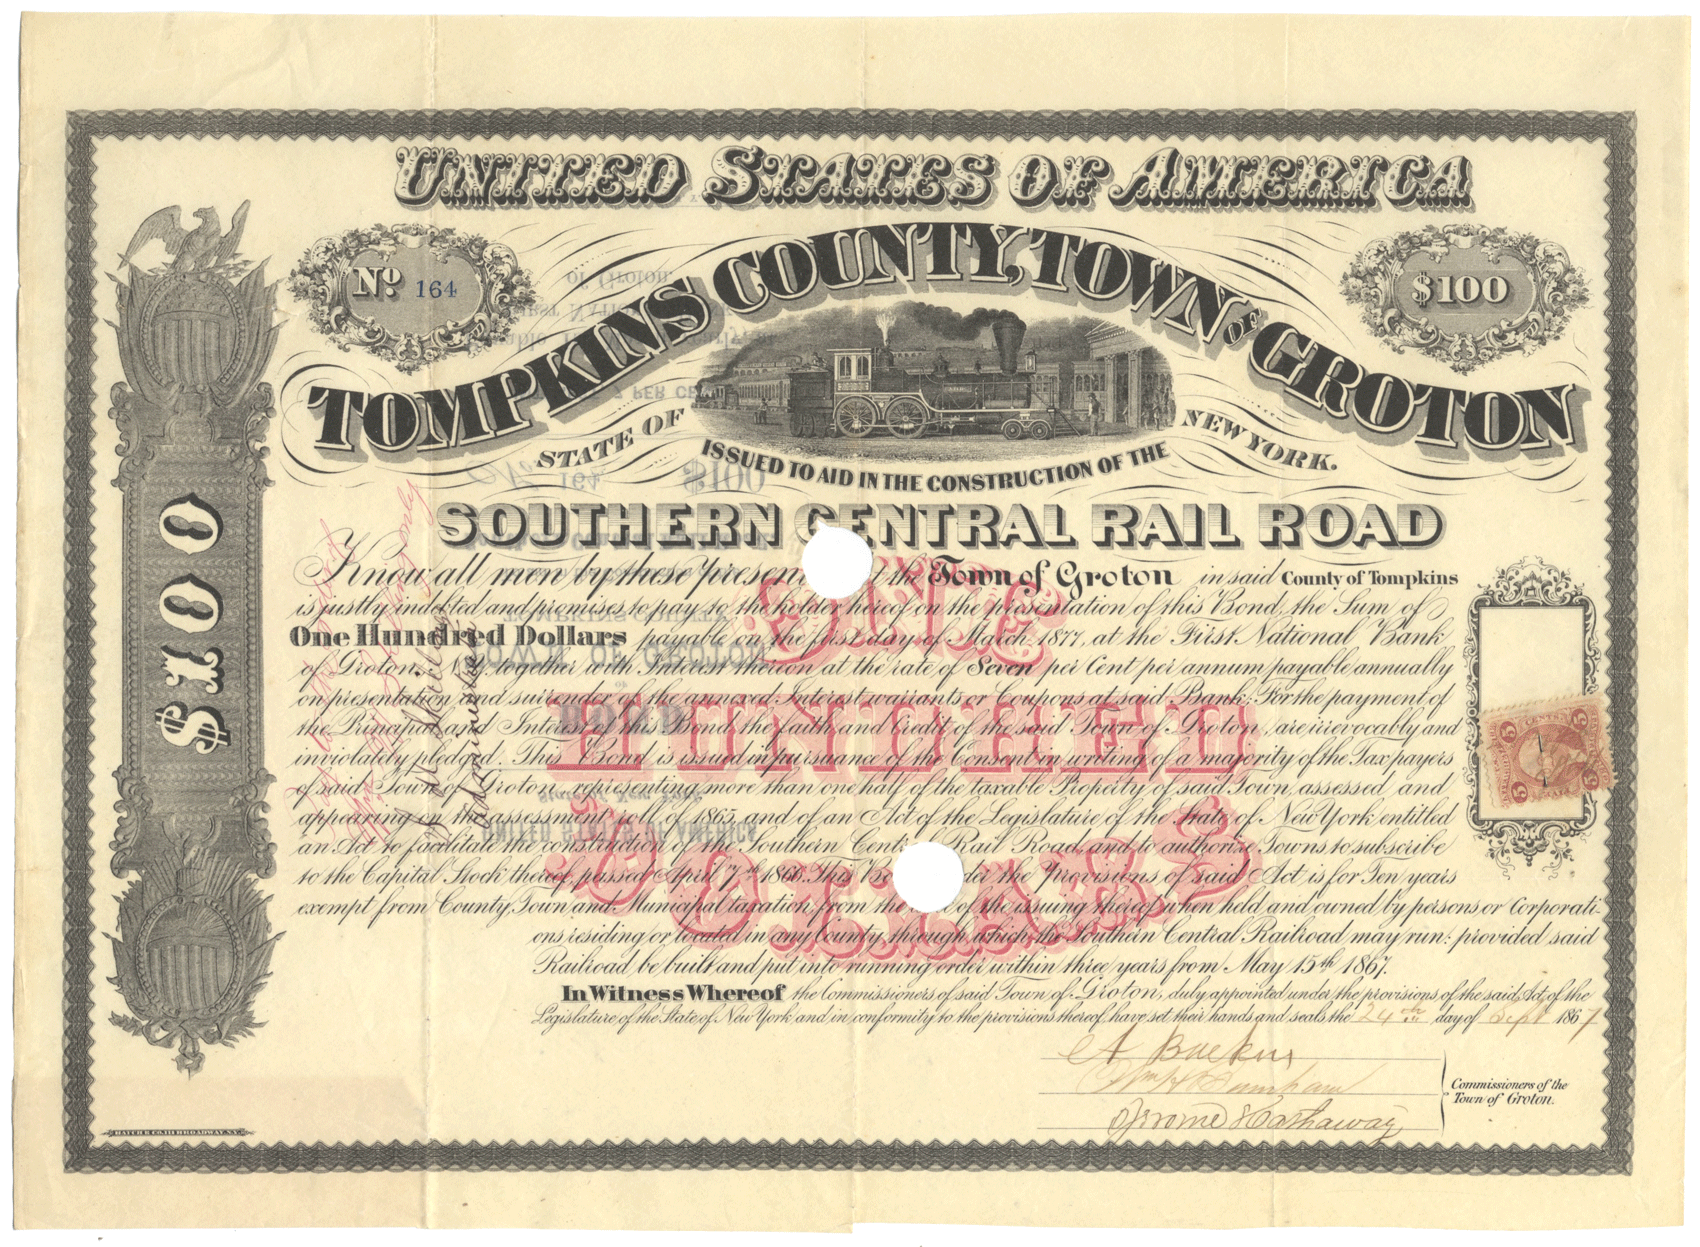 UNITED STATES OF AMERICA
No. 164
$100
TOMPKINS COUNTY, TOWN OF GROTON
STATE OF NEW YORK.
ISSUED TO AID IN THE CONSTRUCTION OF THE
SOUTHERN CENTRAL RAIL ROAD
$100
Know all men by these presen t the Town of Groton in said County of Tompkins
is justly indebted and premises to pay to the holder hereof on the presentation of this Bond, the Sum of
One Hundred Dollars payable on the first day of March 1877, at the First National Bank
of Groton, N.Y. together with Interest thereon at the rate of Seven per Cent per annum payable annually
on presentation and surrender of the annexed Interest warrants or Coupons at said Bank: For the payment of
the Principal and Interest of this Bond, the faith and Credit of the said Town of Groton, are irrevocably and
inviolately pledged. This Bond is issued in pursuance of the Consent in writing of a majority of the Tax payers
of said Town of Groton, representing more than one half of the taxable Property of said Town, assessed and
appearing on the assessment roll of 1865, and of an Act of the Legislature of the State of New York entitled
an Act to facilitate the construction of the Southern Cent Rail Road, and to authorize Towns to subscribe
to the Capital Stock thereof, passed April 7th 1866. This Bo der the Provisions of said Act is for Ten years
exempt from County, Town and Municipal taxation from the of the issuing thereof when held and owned by persons or Corporati-
ons residing or located in any County, through which the Southern Central Railroad may run: provided said
Railroad be built and put into running order within three years from May 15th 1867.
In Witness Whereof the Commissioners of said Town of Groton, duly appointed under the provisions of the said Act of the
Legislature of the State of New York and in conformity to the provisions thereof, have set their hands and seals the 24th day of Sept 1867
ONE
HUNDRED
DOLLARS
Wm H Burnham
Jerome Hathaway
Commissioners of the
Town of Groton.
5 CENTS 5
5 5
HATCH & CO. 111 BROADWAY, N.Y.